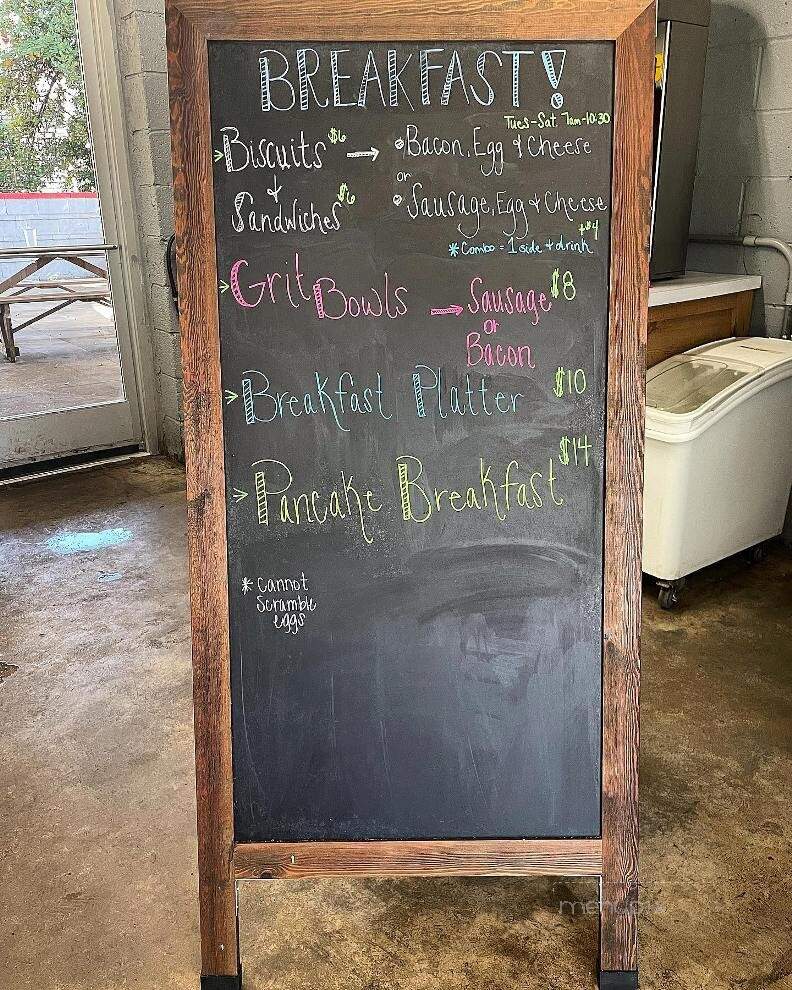 BREAKFAST!
Tues-Sat 7am-10:30
> Biscuits $6 → Bacon, Egg & Cheese
or
+
Sandwiches $6 Sausage, Egg + Cheese
+$4
* Combo = 1 side + drink
> Grit Bowls → Sausage $8
or
Bacon
> Breakfast Platter $10
> Pancake Breakfast $14
* Cannot
Scramble
eggs